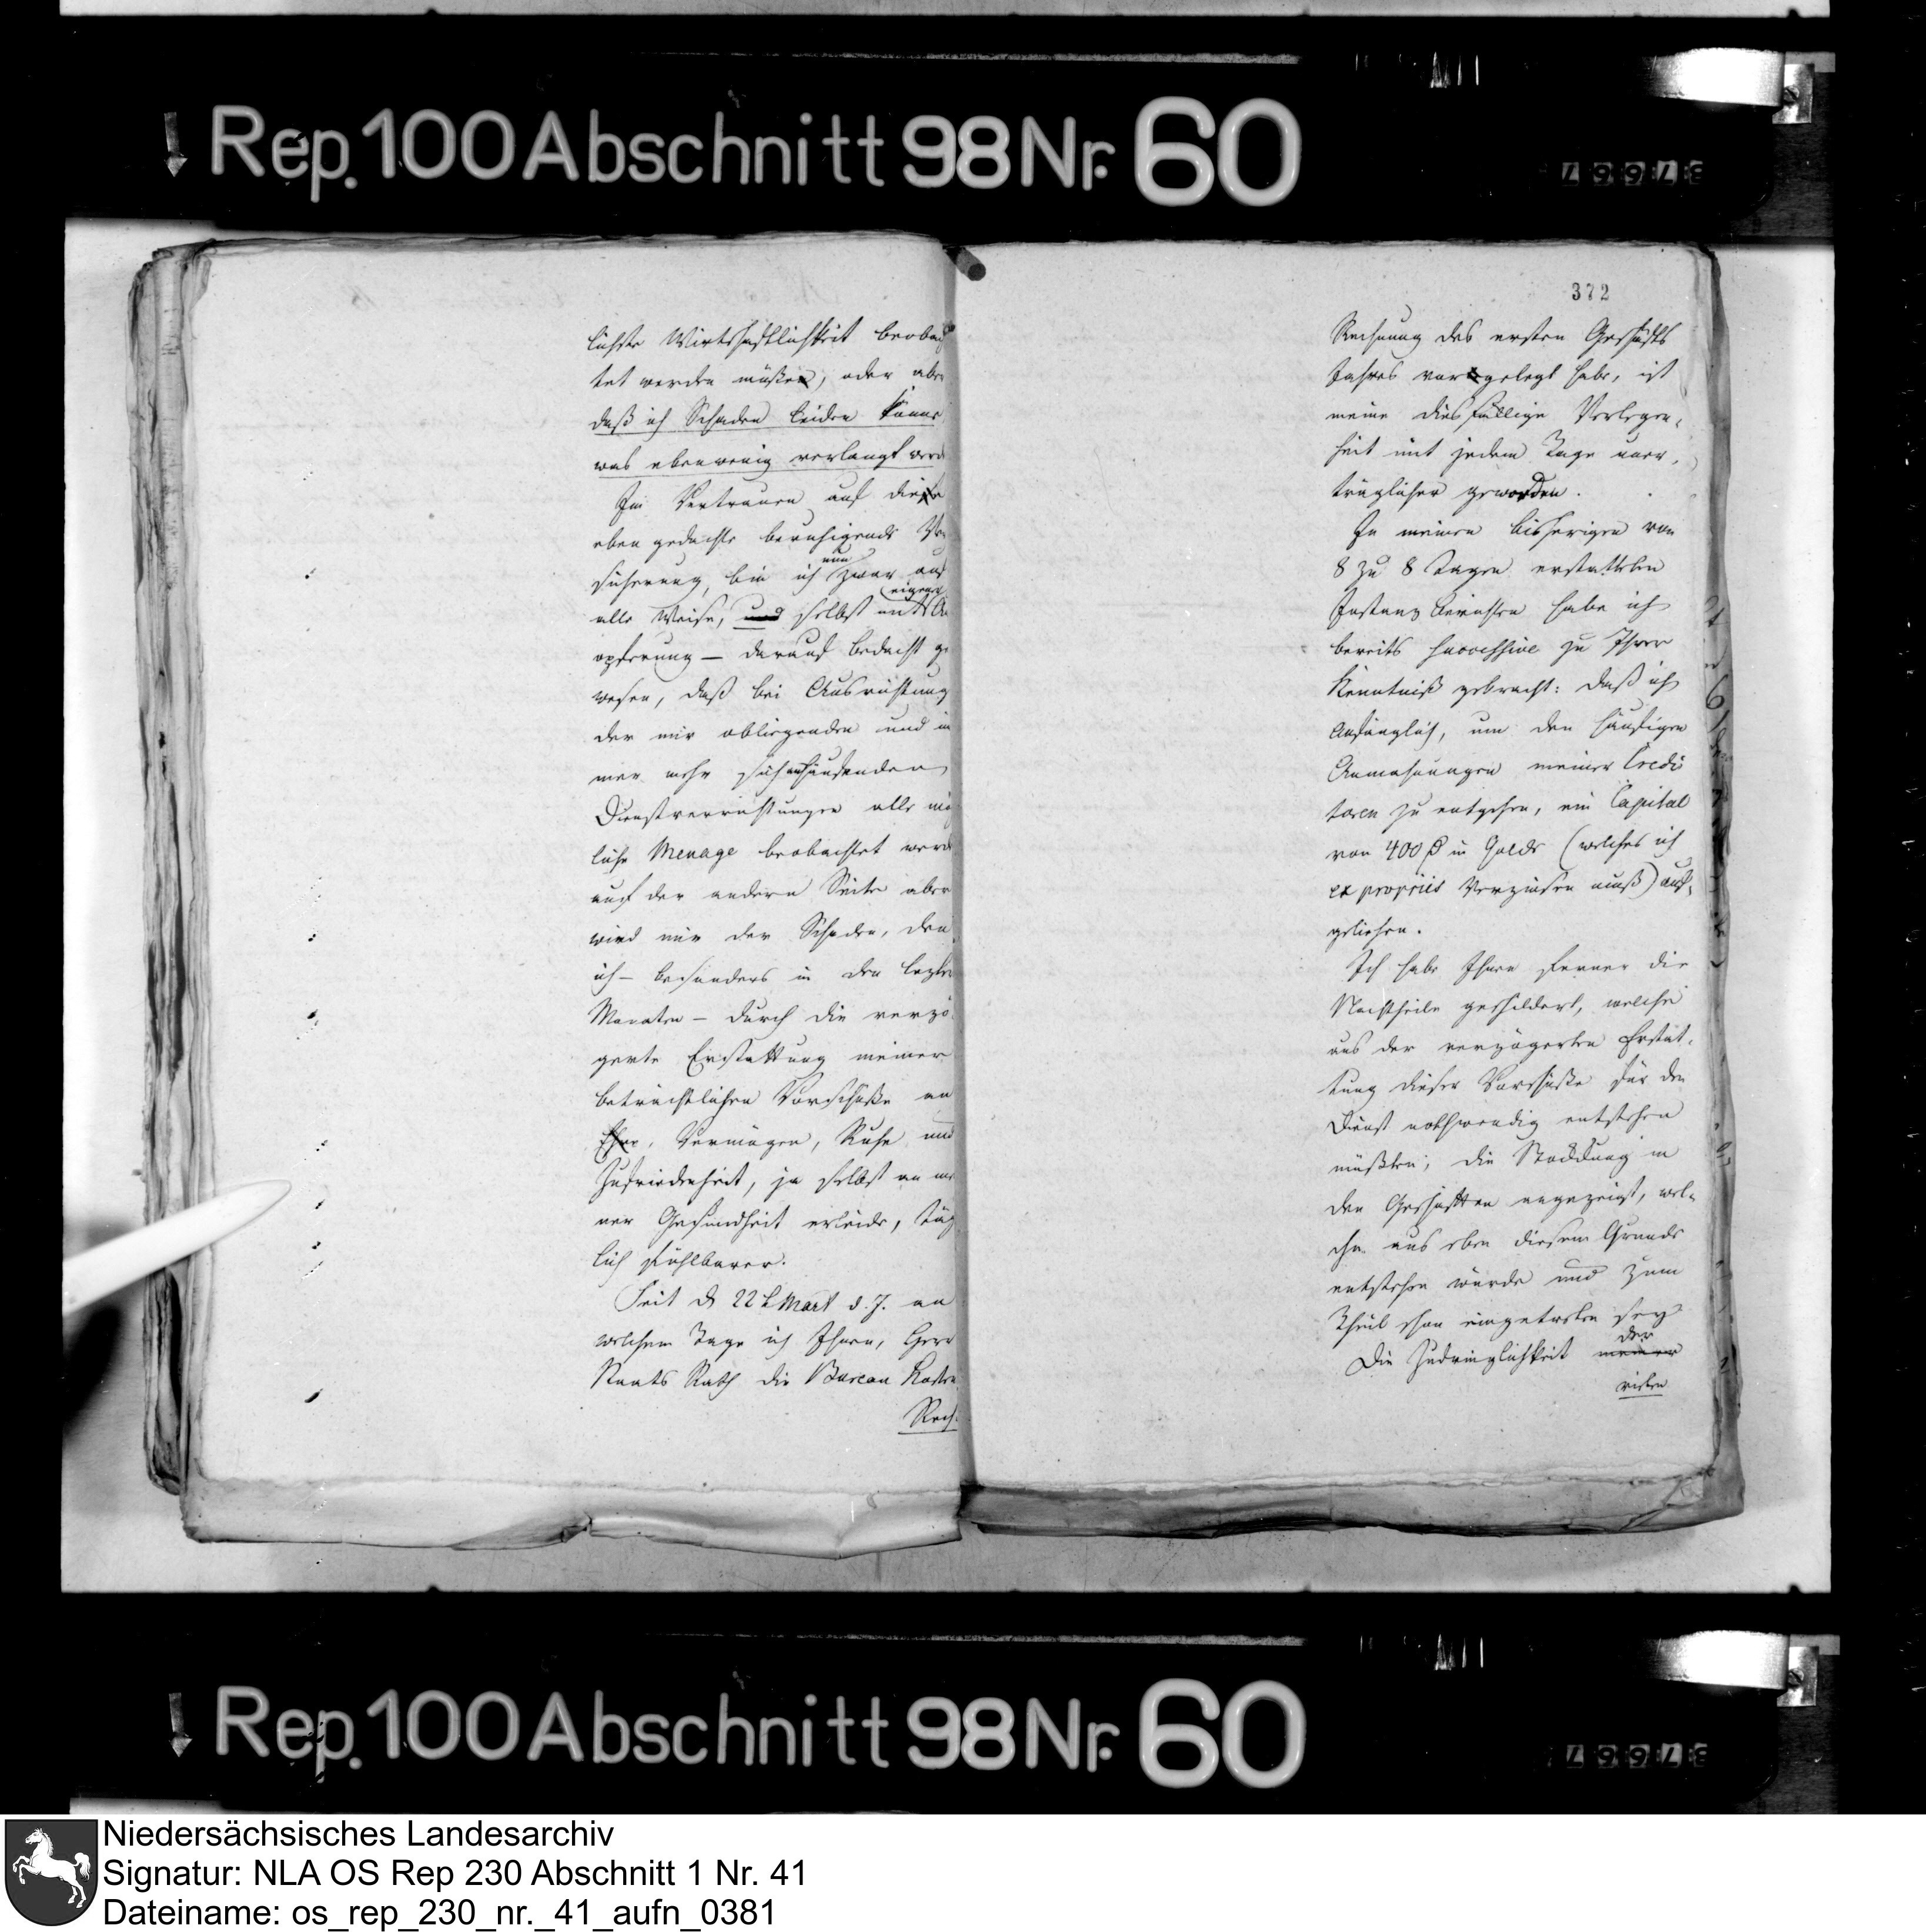 Rep. 100 Abschnitt 98 Nr. 60
37667
lichste Wirthschaftlichkeit beobach
tet werden müße, oder aber
daß ich Schaden leiden könne
was ebenwenig verlangt werd
Im Vertrauen auf diese
eben gedachte beruhigende Ver
sicherung, bin ich nun zwar auf
alle Weise, und selbst mit eigener Auf
opferung — darauf bedacht ge
wesen, daß bei Ausrichtung
der mir obliegenden und im
mer mehr sich anhäufenden
Dienstverrichtungen alle mög
liche Menage beobachtet werde
auf der andern Seite aber
wird mir der Schaden, den
ich — besonders in den lezten
Monaten — durch die verzö
gerte Erstattung meiner
beträchtlichen Vorschüße an
Ehre, Vermögen, Ruhe und
Zufriedenheit, ja selbst an mei
ner Gesundheit erleide, täg
lich fühlbarer.
Seit d 22t Mart d. J. an
welchem Tage ich Ihnen, Herr
Staats Rath die Bureau Kosten
Rech
372
Rechnung des ersten Geschäfts
Jahres vorgelegt habe, ist
meine diesfällige Verlegen-
heit mit jedem Tage uner-
träglicher geworden.
In meinen bisherigen von
8 zu 8 Tagen erstatteten
Instanz Berichten habe ich
bereits successive zu Ihrer
Kenntniß gebracht: daß ich
anfänglich, um den häufigen
Anmahnungen meiner Credi
toren zu entgehen, ein Capital
von 400 in Golde (welches ich
ex propriis verzinsen muß) auf-
geliehen.
Ich habe Ihnen ferner die
Nachtheile geschildert, welche
aus der verzögerten Erstat-
tung dieser Vorschüße für den
Dienst nothwendig entstehen
müßten; die Stockung in
den Geschäften angezeigt, wel-
che aus eben diesem Grunde
entstehen würde und zum
Theil schon eingetreten sey
Die Zudringlichkeit meiner der
vielen
Rep. 100 Abschnitt 98 Nr. 60
37667
Niedersächsisches Landesarchiv
Signatur: NLA OS Rep 230 Abschnitt 1 Nr. 41
Dateiname: os_rep_230_nr._41_aufn_0381